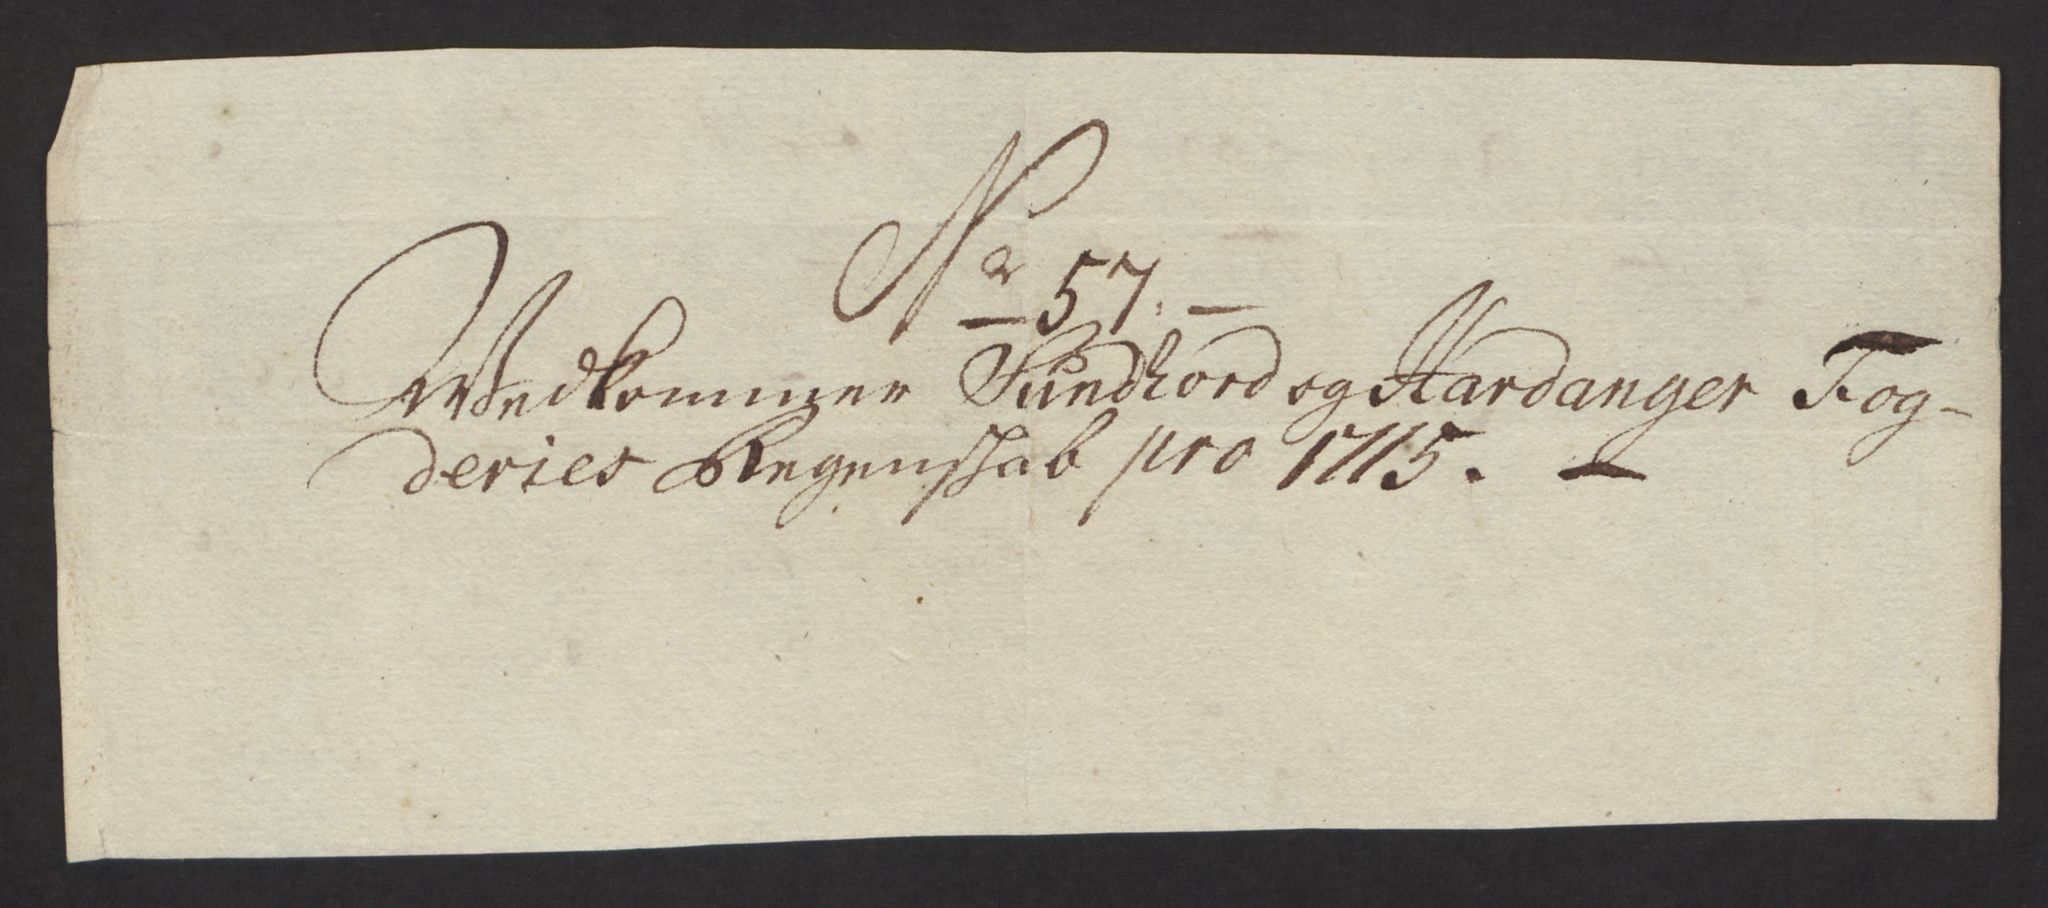 Nr 57. —
Wedkommer Sundhord og Hardanger Fog-
deries Regenskab pro 1715. —